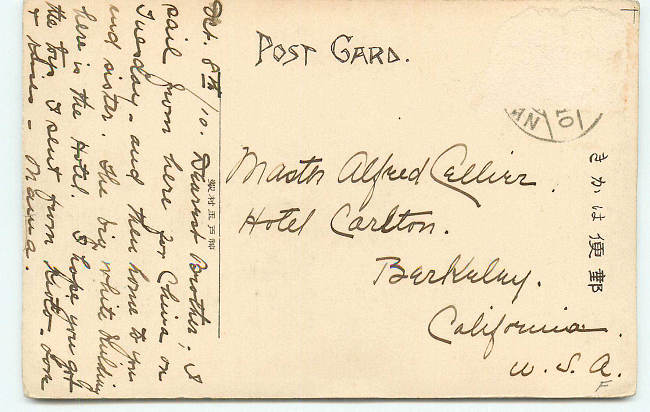 POST CARD.
Oct. 8th /10. Dearest Brother; I
sail from here for China on
Tuesday - and then home to you
and sister. The big white building
here is the Hotel. I hope you got
the toys I sent from Kioto - Love
& kisses - Mama.
Master Alfred Cellier.
Hotel Carlton.
Berkeley.
California.
U.S.A.
きかは便郵
F